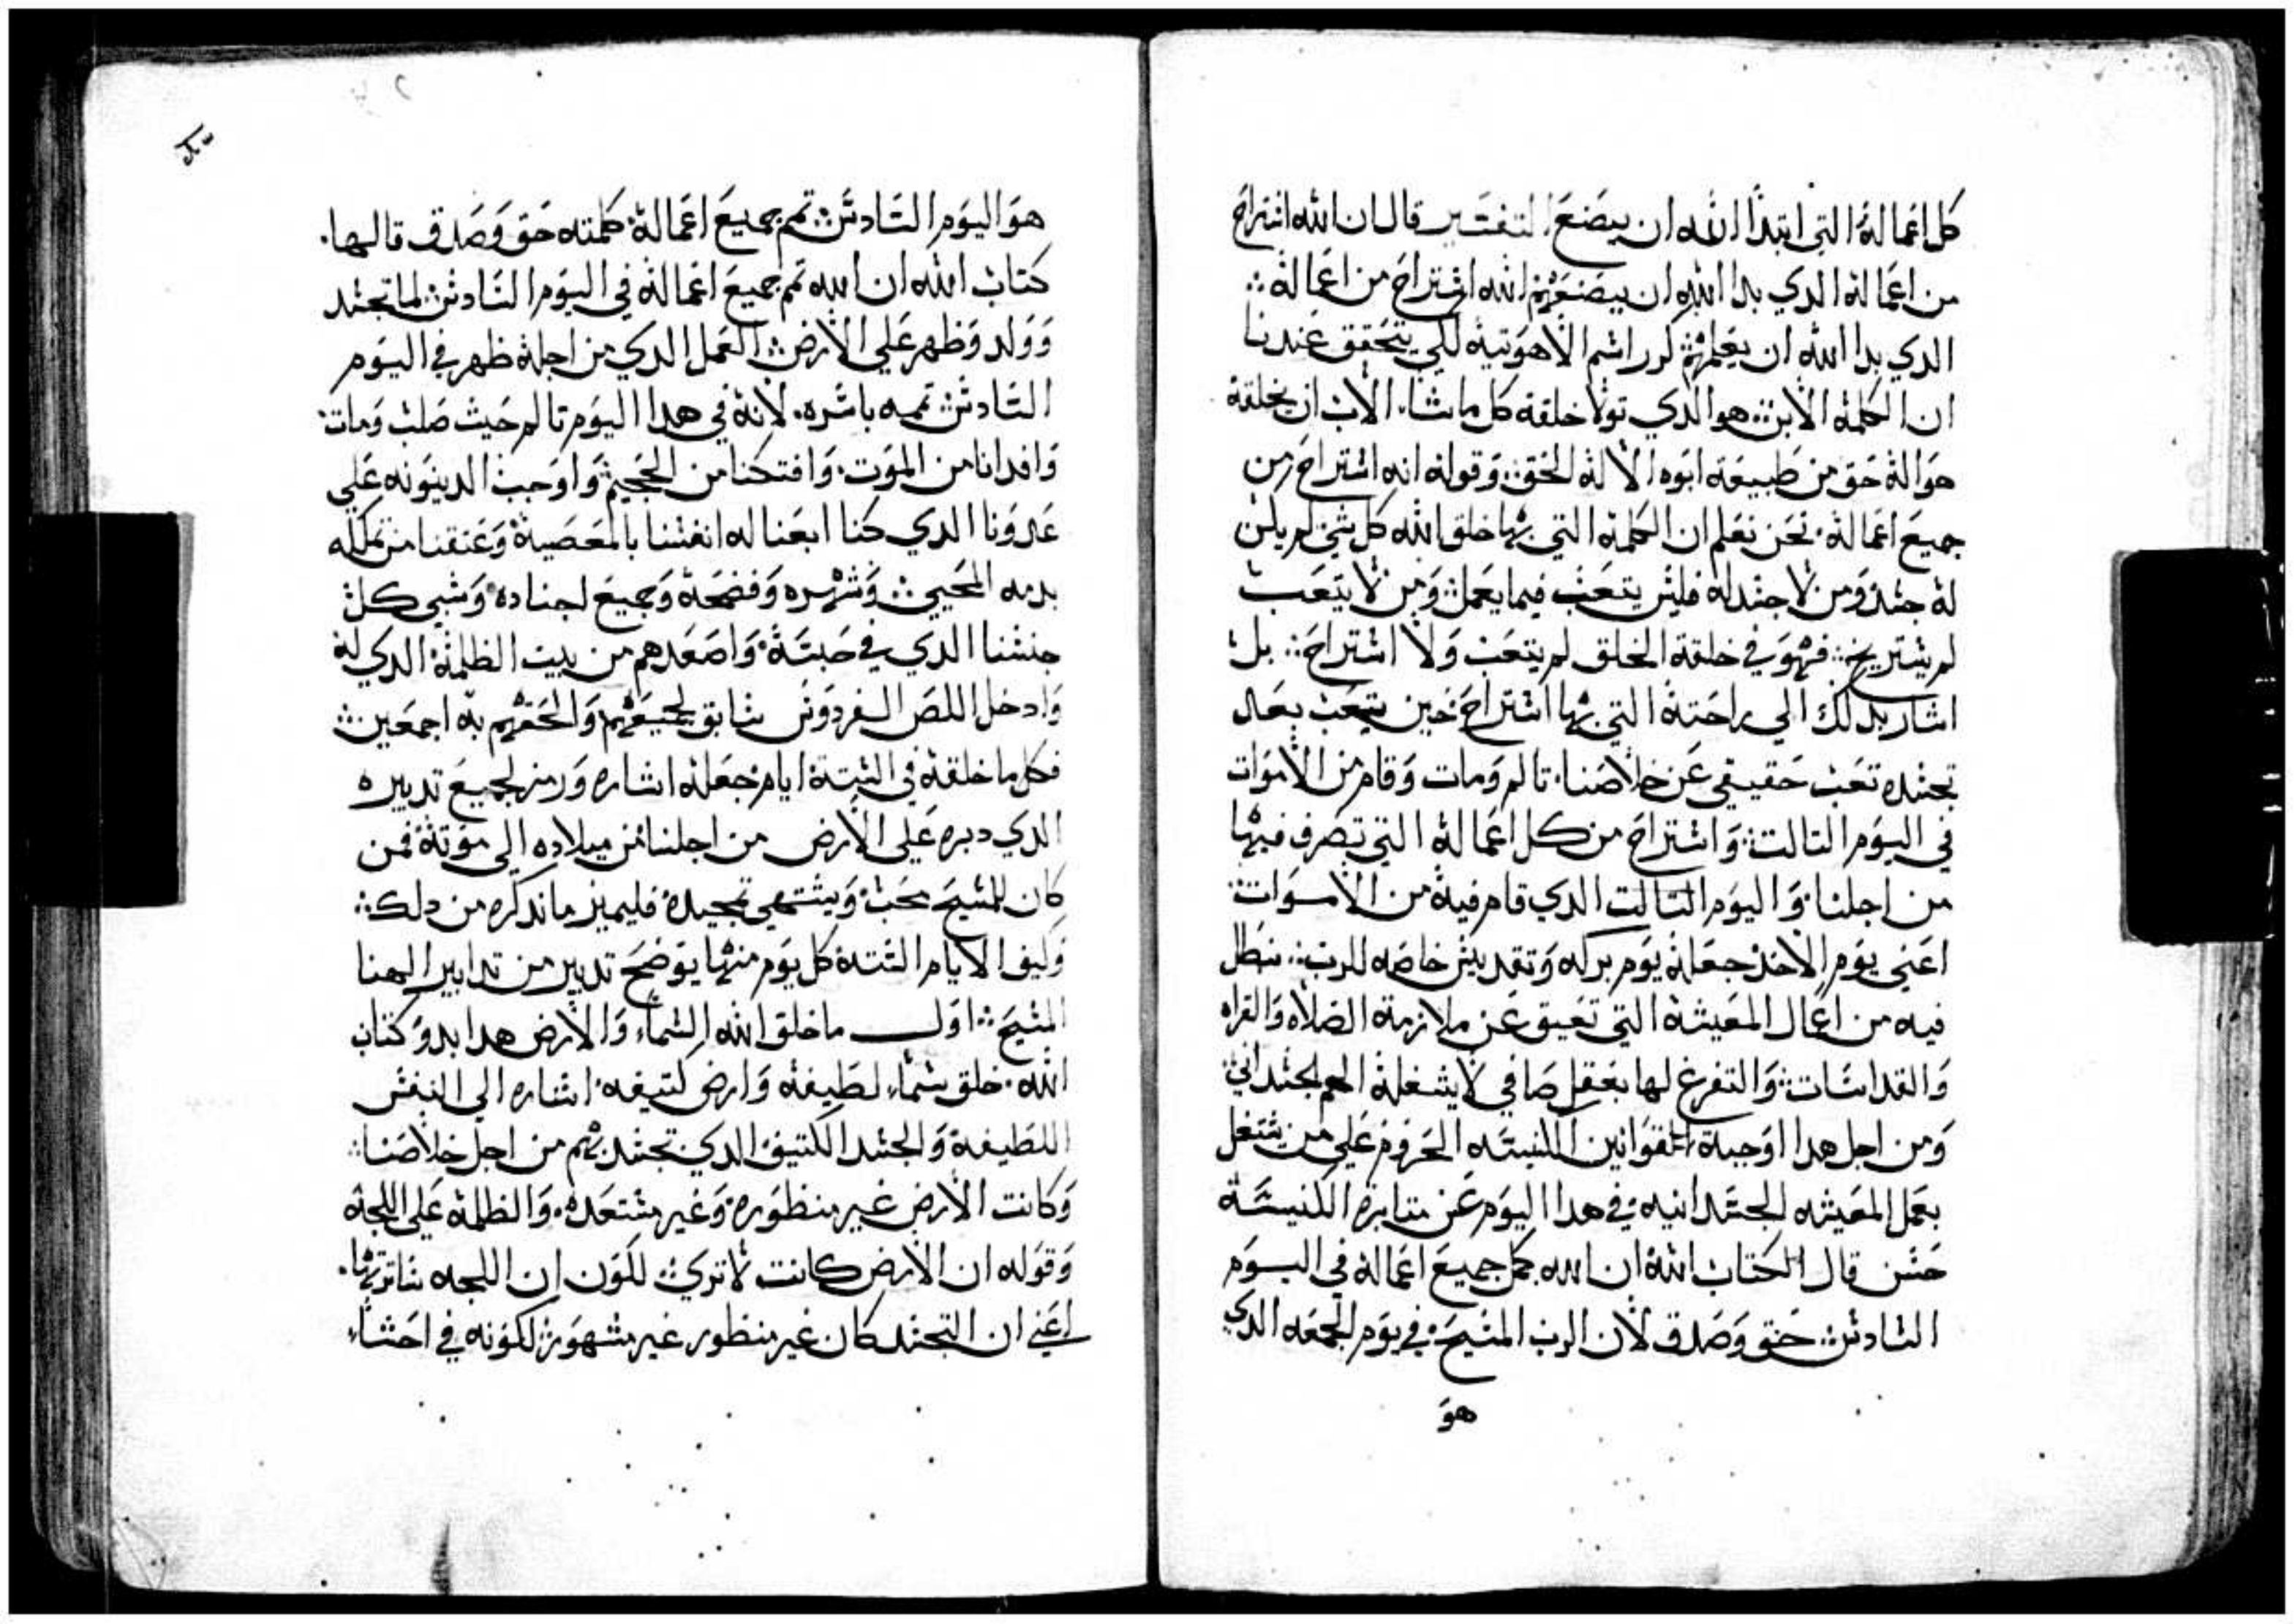 كل اعماله التي ابتدا الله ان يصنع التفسير قال ان الله استراح
من اعماله الدي بدا الله ان يصنعهم الله استراح من اعماله
الدي بدا الله ان يعملهم كرر اسم الاهوتيه لكي يتحقق عندنا
ان الكلمه الابن هو الدي تولا خلقة كل ما شا الاب ان يخلقه
هو اله حق من طبيعة ابوه الاله الحق وقوله انه استراح من
جميع اعماله نحن نعلم ان الكلمه التي بها خلق الله كل شي لم يكن
له جسد ومن لا جسد له فليس يتعب فيما يعمل ومن لا يتعب
لم يستريح فهو في خلقة الخلق لم يتعب ولا استراح بل
اشار بدلك الي راحته التي بها استراح حين تعب بعد
تجسده تعب حقيقي عن خلاصنا تالم ومات وقام من الاموات
في اليوم التالت واستراح من كل اعماله التي تصرف فيها
من اجلنا واليوم التالت الدي قام فيه من الاموات
اعني يوم الاحد جعله يوم بركه وتقديس خاصه للرب نبطل
فيه من اعمال المعيشه التي تعيق عن ملازمة الصلاه والقراه
والقداسات والتفرغ لها بعقل صافي لا يشغله الهم الجسداني
ومن اجل هدا اوجبة القوانين الكنيسه الحروم علي من يشتغل
بعمل المعيشه الجسدانيه في هدا اليوم عن متابرة الكنيسة
حسن قال الكتاب الله ان الله كمل جميع اعماله في اليوم
السادس حق وصدق لان الرب المسيح في يوم الجمعه الدي
هو
هو اليوم السادس تمم جميع اعماله كلمته حق وصدق قالها
كتاب الله ان الله تمم جميع اعماله في اليوم السادس لما تجسد
وولد وظهر علي الارض العمل الدي من اجله ظهر في اليوم
السادس تممه باسره لانه في هدا اليوم تالم حيت صلب ومات
وافدانا من الموت وافتكنا من الجحيم واوجب الدينونه علي
عدونا الدي كنا ابعنا له انفسنا بالمعصية وعتقنا من تملكه
بدمه المحيي وشهره وفضحه وجميع اجناده وسبي كل
جنسنا الدي في حبسه واصعدهم من بيت الظلمة الدي له
وادخل اللص الفردوس سابق لجميعهم والحقهم به اجمعين
فكل ما خلقه في الستة ايام جعله اشاره ورمز لجميع تدبيره
الدي دبره علي الارض من اجلنا من ميلاده الي موته فمن
كان للمسيح محب ويشتهي تمجيده فليميز ما ندكره من دلك
وكيف الايام الستة كل يوم منها يوضح تدبير من تدابير الهنا
المسيح اول ما خلق الله السماء والارض هدا بدو كتاب
الله خلق سماء لطيفة وارض كتيفه اشاره الي النفس
اللطيفة والجسد الكتيف الدي تجسد بهم من اجل خلاصنا
وكانت الارض غير منظوره وغير مستعده والظلمة علي اللجة
وقوله ان الارض كانت لا تري للكون ان اللجه ساترتها
اعني ان التجسد كان غير منظور غير مشهور لكونه في احشاء